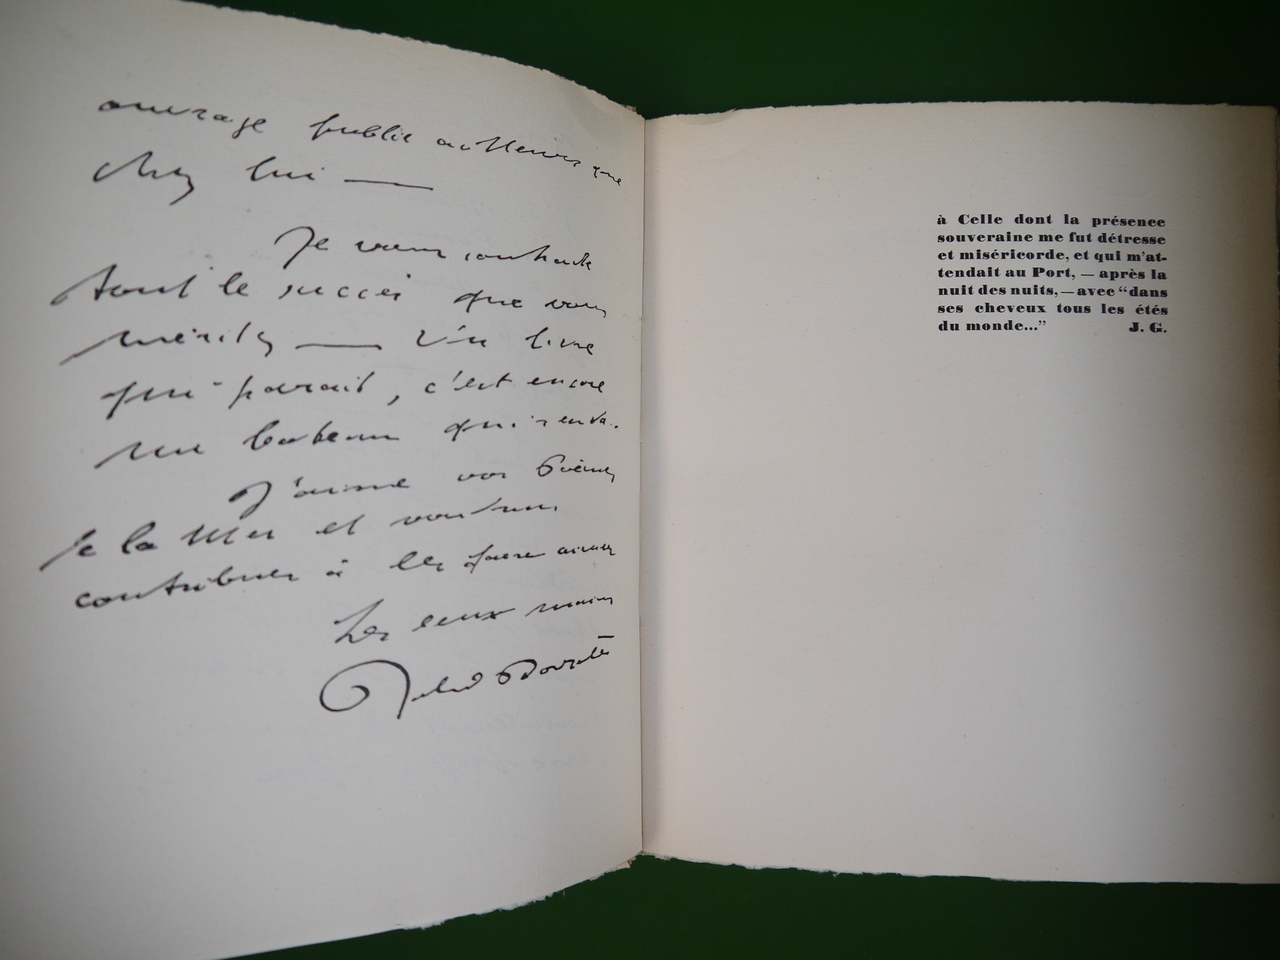 ouvrage publié ailleurs que
chez lui —
Je vous souhaite
tout le succès que vous
méritez — Un livre
qui paraît, c'est encore
un bateau qui s'en va.
J'aime vos Poèmes
de la Mer et voudrais
contribuer à les faire aimer
Les deux mains
à Celle dont la présence
souveraine me fut détresse
et miséricorde, et qui m'at-
tendait au Port, — après la
nuit des nuits, — avec “dans
ses cheveux tous les étés
du monde...” J. G.